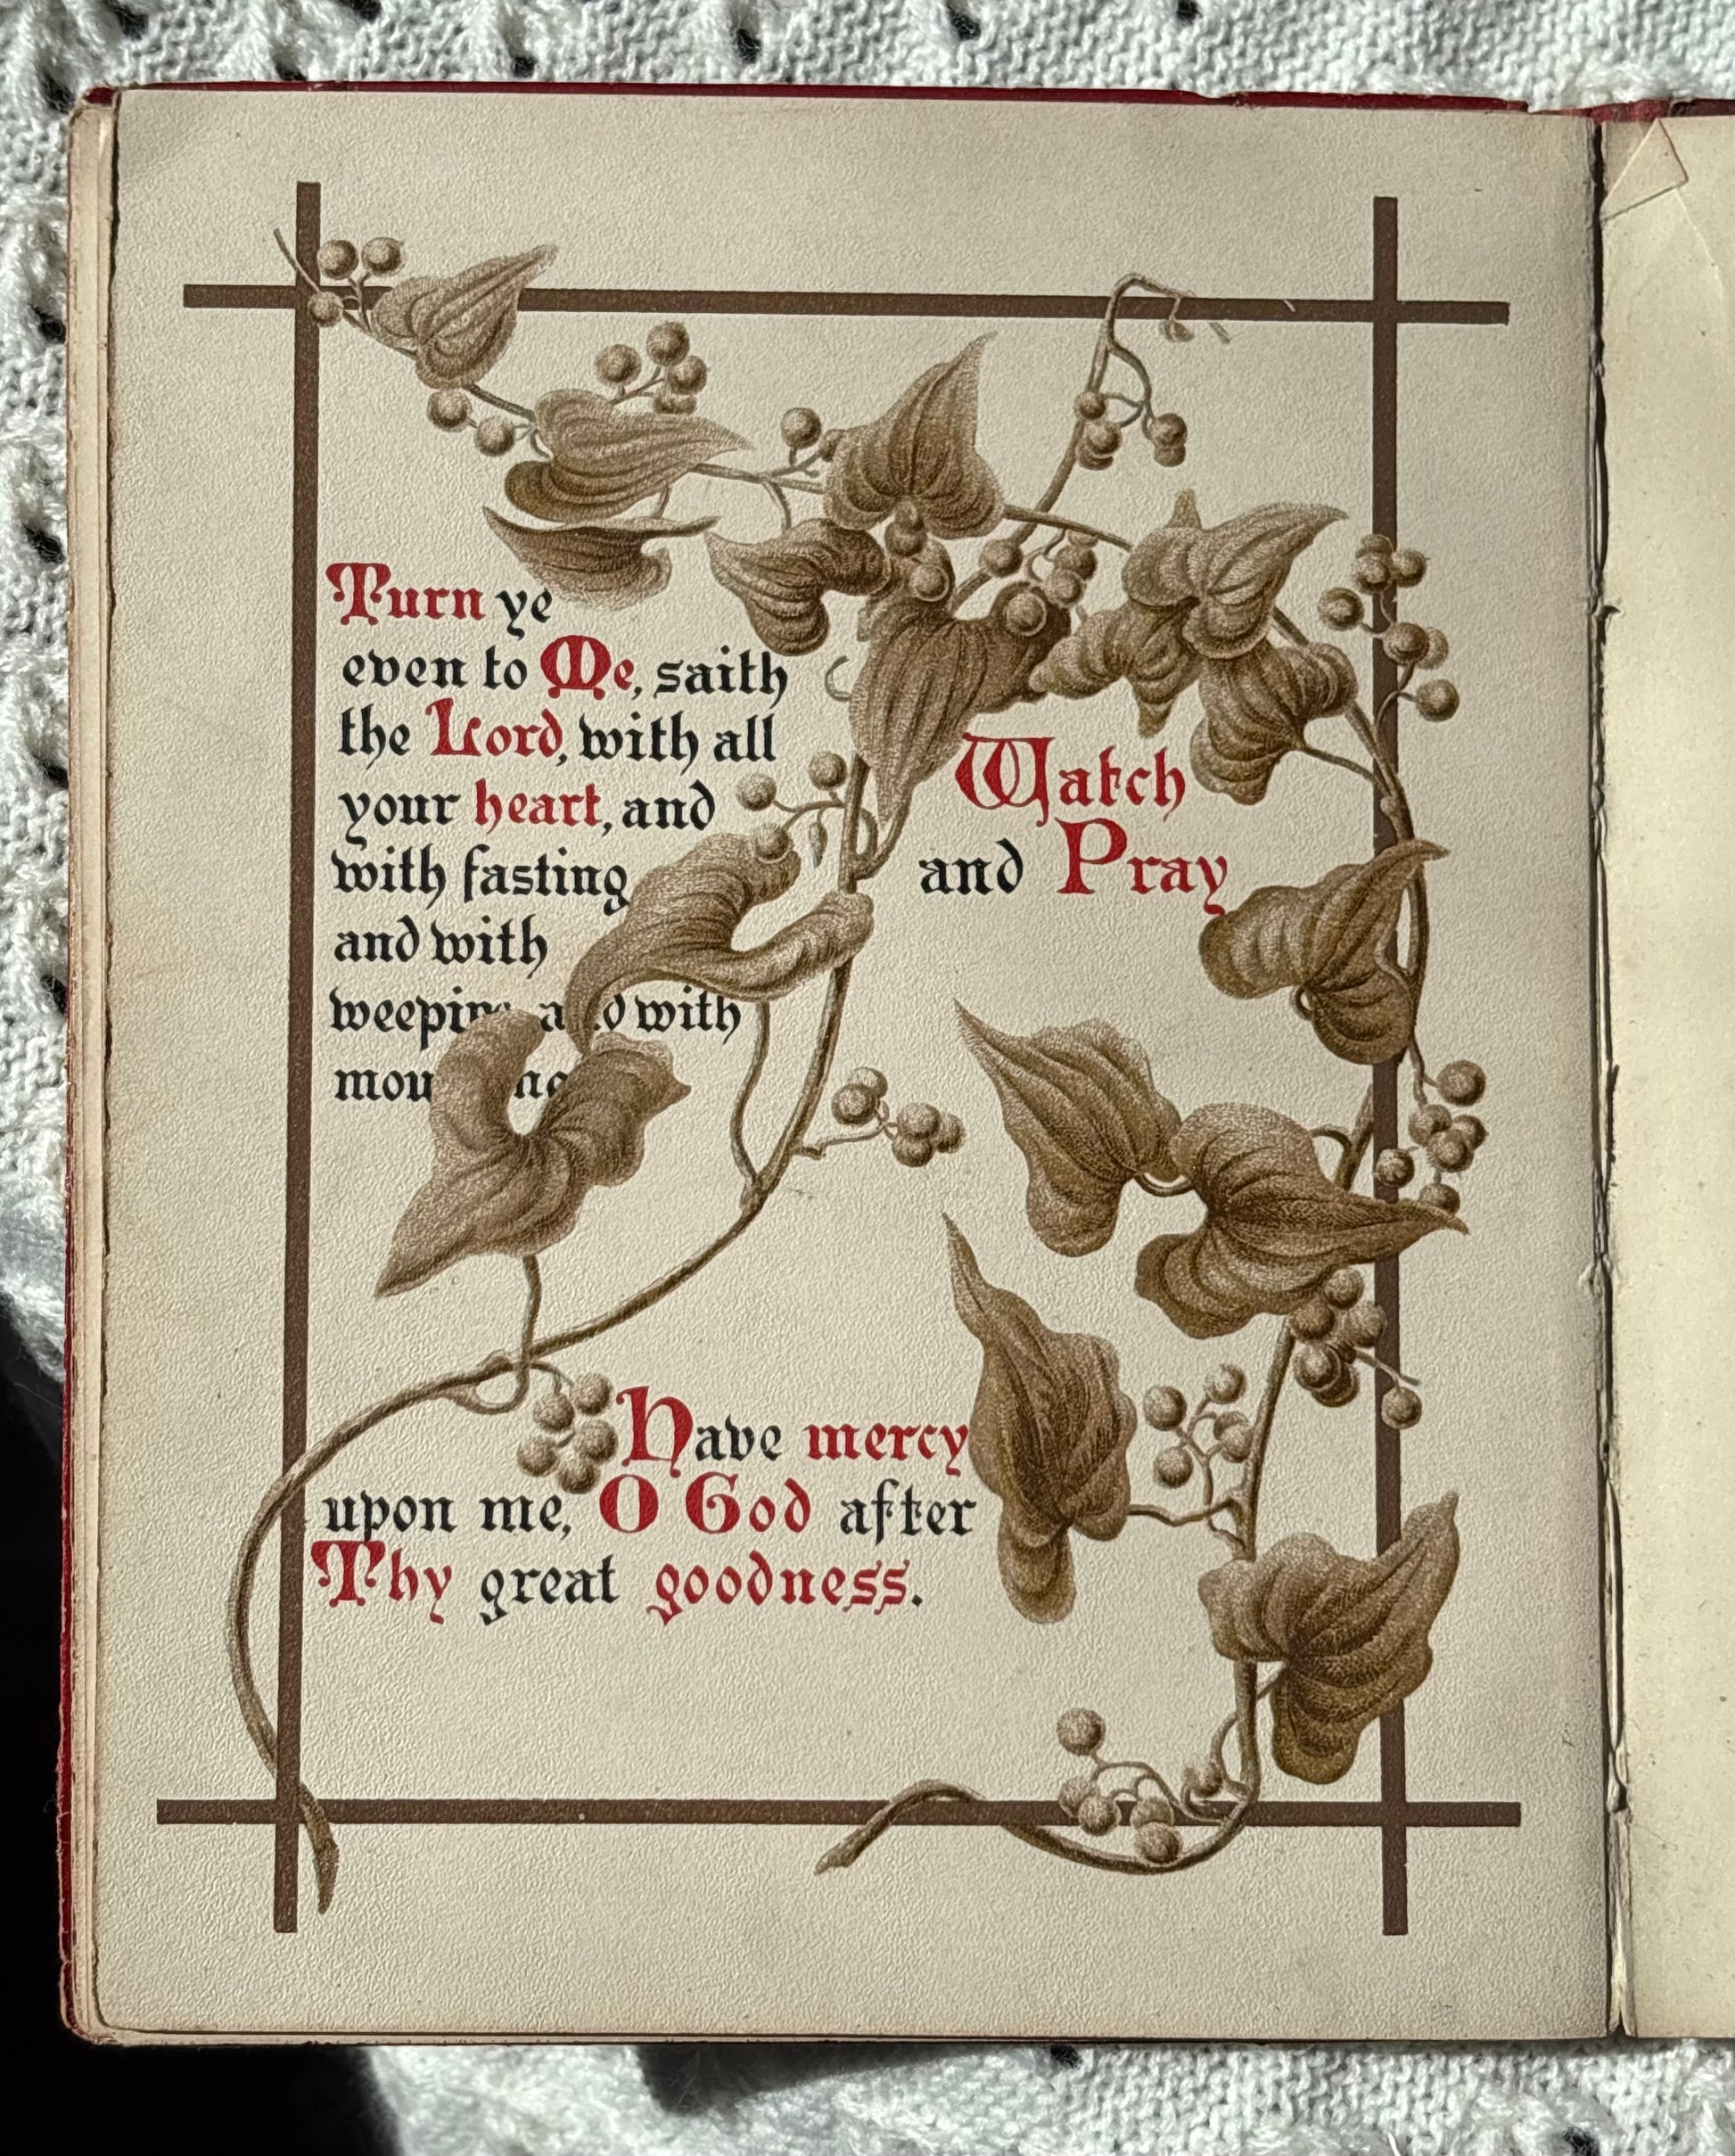 Turn ye
even to Me, saith
the Lord, with all
your heart, and
with fasting
and with
with
Watch
and Pray
Have mercy
upon me, O God after
Thy great goodness.